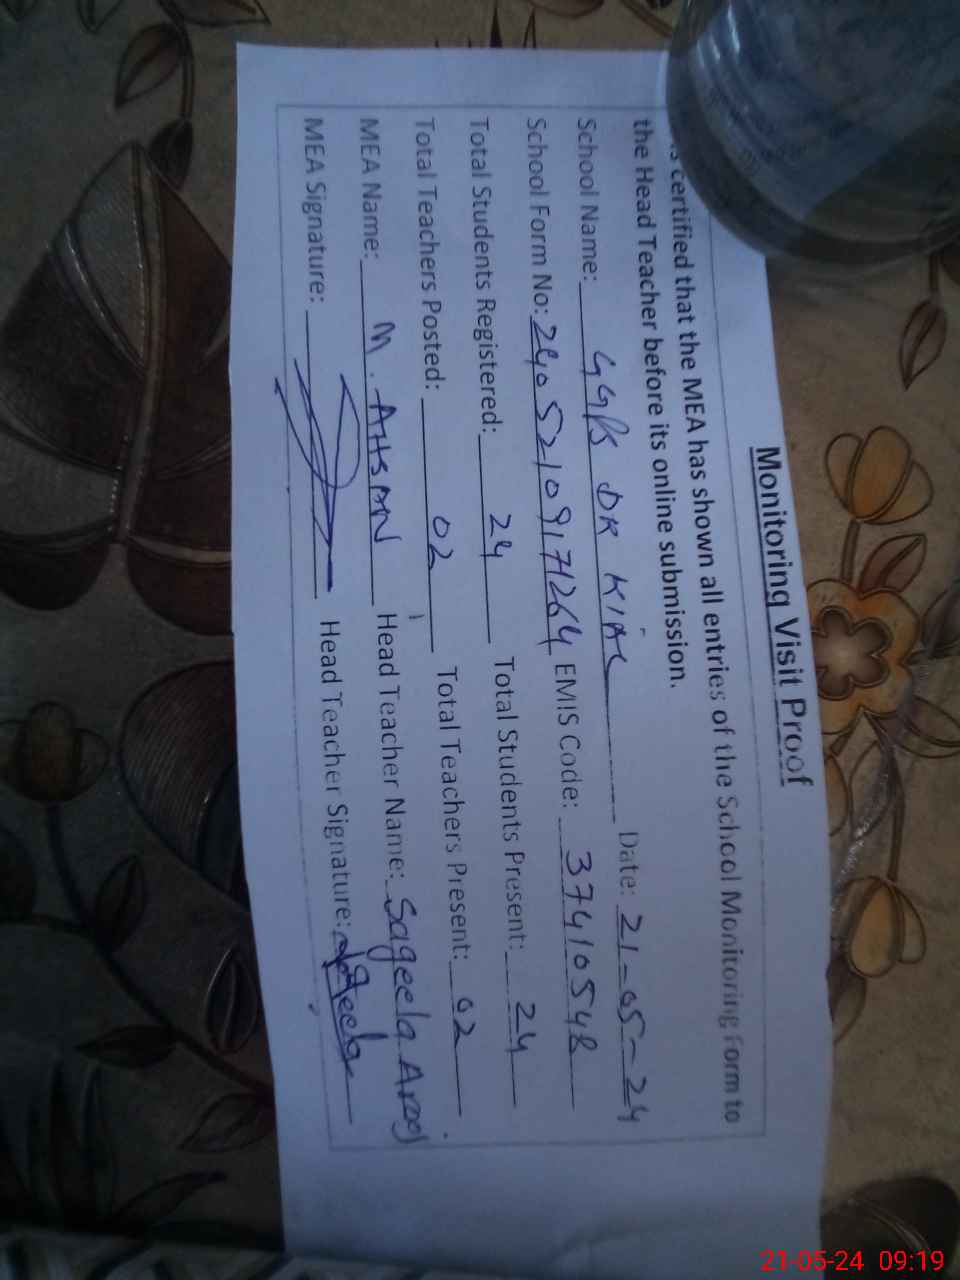 Monitoring Visit Proof
is certified that the MEA has shown all entries of the School Monitoring Form to
the Head Teacher before its online submission.
School Name: GGPS DK KIAL Date: 21-05-24
School Form No: 24052109171264 EMIS Code: 37410548
Total Students Registered: 24 Total Students Present: 24
Total Teachers Posted: 02 Total Teachers Present: 02
MEA Name: M. AHSAN Head Teacher Name: Sageela
MEA Signature: Head Teacher Signature:
21-05-24 09:19